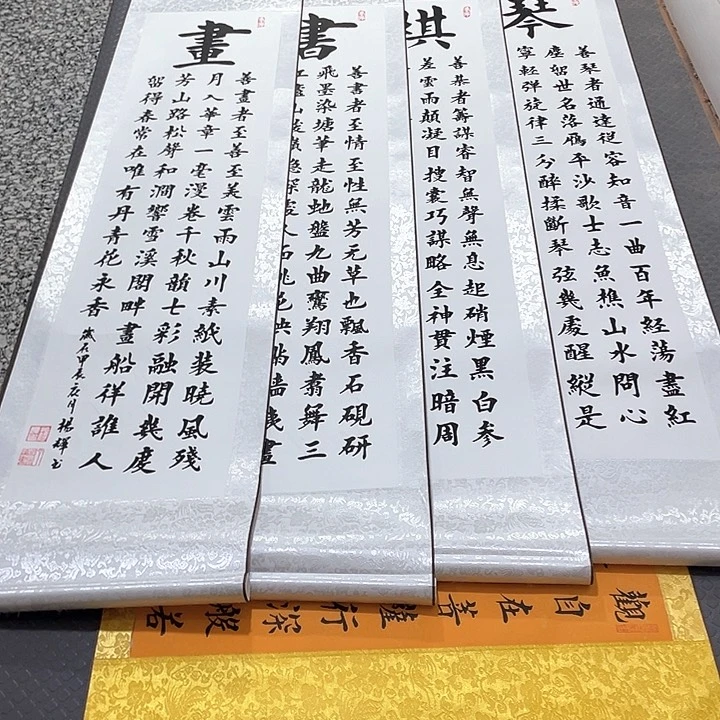 琴
善琴者通達從容知音一曲百年經蕩盡紅
塵留世名落雁平沙歌士志魚樵山水問心
寧輕彈旋律三分醉揉斷琴弦幾處醒縱是
棋
善棊者籌謀睿智無聲無息起硝煙黑白參
差雲雨顛凝目搜囊巧謀略全神貫注暗周
書
善書者至情至性無芳无草也飄香石硯研
飛墨染塘筆走龍虵盤九曲鸞翔鳳翥舞三
畫
善畫者至善至美雲雨山川素紙裝曉風殘
月入華章一毫漫卷千秋韻七彩融開幾度
芳山路松聲和澗響雪溪閣畔畫船徉誰人
留得春常在唯有丹青花永香
楊輝书
觀自在菩薩行深般若